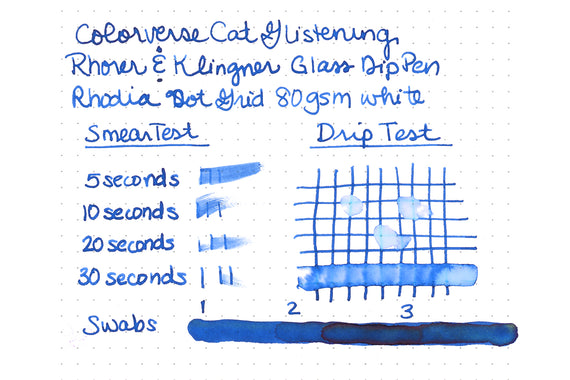 Colorverse Cat Glistening
Rhorer & Klingner Glass Dip Pen
Rhodia Dot Grid 80gsm white
Smear Test Drip Test
5 seconds
10 seconds
20 seconds
30 seconds
1 2 3
Swabs